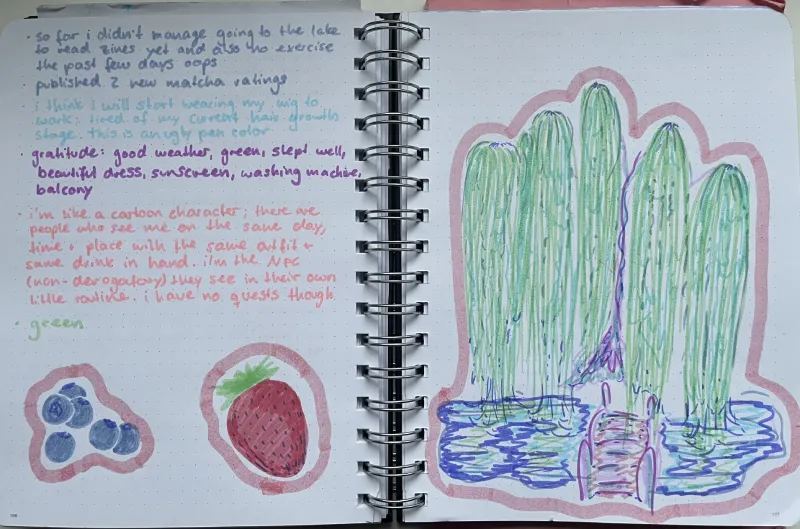 · so far i didn't manage going to the lake
to read zines yet and also no exercise
the past few days oops
· published 2 new matcha ratings
· i think i will start wearing my wig to
work: tired of my current hair growths
stage. this is an ugly pen color
· gratitude: good weather, green, slept well,
beautiful dress, sunscreen, washing machine,
balcony
· i'm like a cartoon character; there are
people who see me on the same day,
time + place with the same outfit +
same drink in hand. i'm the NPC
(non-derogatory) they see in their own
little routine. i have no quests though.
· green